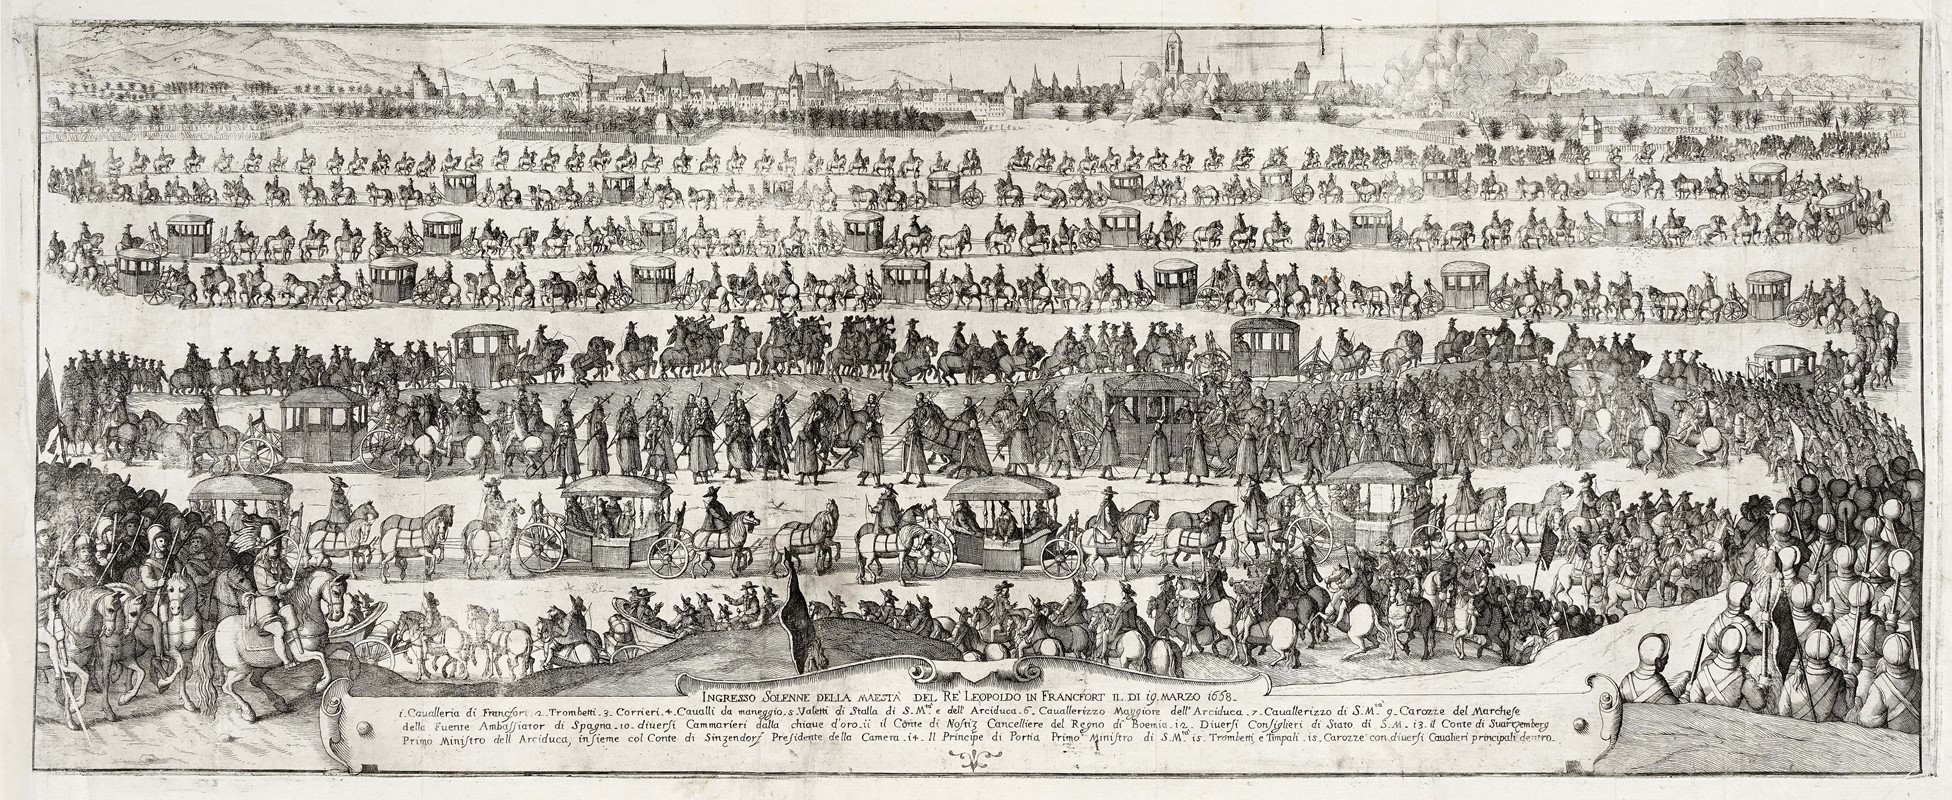 INGRESSO SOLENNE DELLA MAESTÀ DEL RE LEOPOLDO IN FRANCFORT IL DI 19. MARZO 1658.
1. Caualleria di Francfort. 2. Trombetti. 3. Corrieri. 4. Caualli da maneggio. 5. Valetti di Stalla di S. M.tà e dell' Arciduca. 6. Cauallerizzo Maggiore dell' Arciduca. 7. Cauallerizzo di S. M.tà 9. Carozze del Marchese
della Fuente Ambassiator di Spagna. 10. diuersi Cammarieri dalla chiaue d'oro. 11 il Conte di Nostiz Cancelliere del Regno di Boemia. 12. Diuersi Consiglieri di Stato di S. M. 13. il Conte di Suartzemberg
Primo Ministro dell Arciduca, insieme col Conte di Sinzendorf Presidente della Camera. 14. Il Principe di Portia Primo Ministro di S. M.tà 15. Trombetti e Timpali. 15. Carozze con diuersi Caualieri principali dentro.